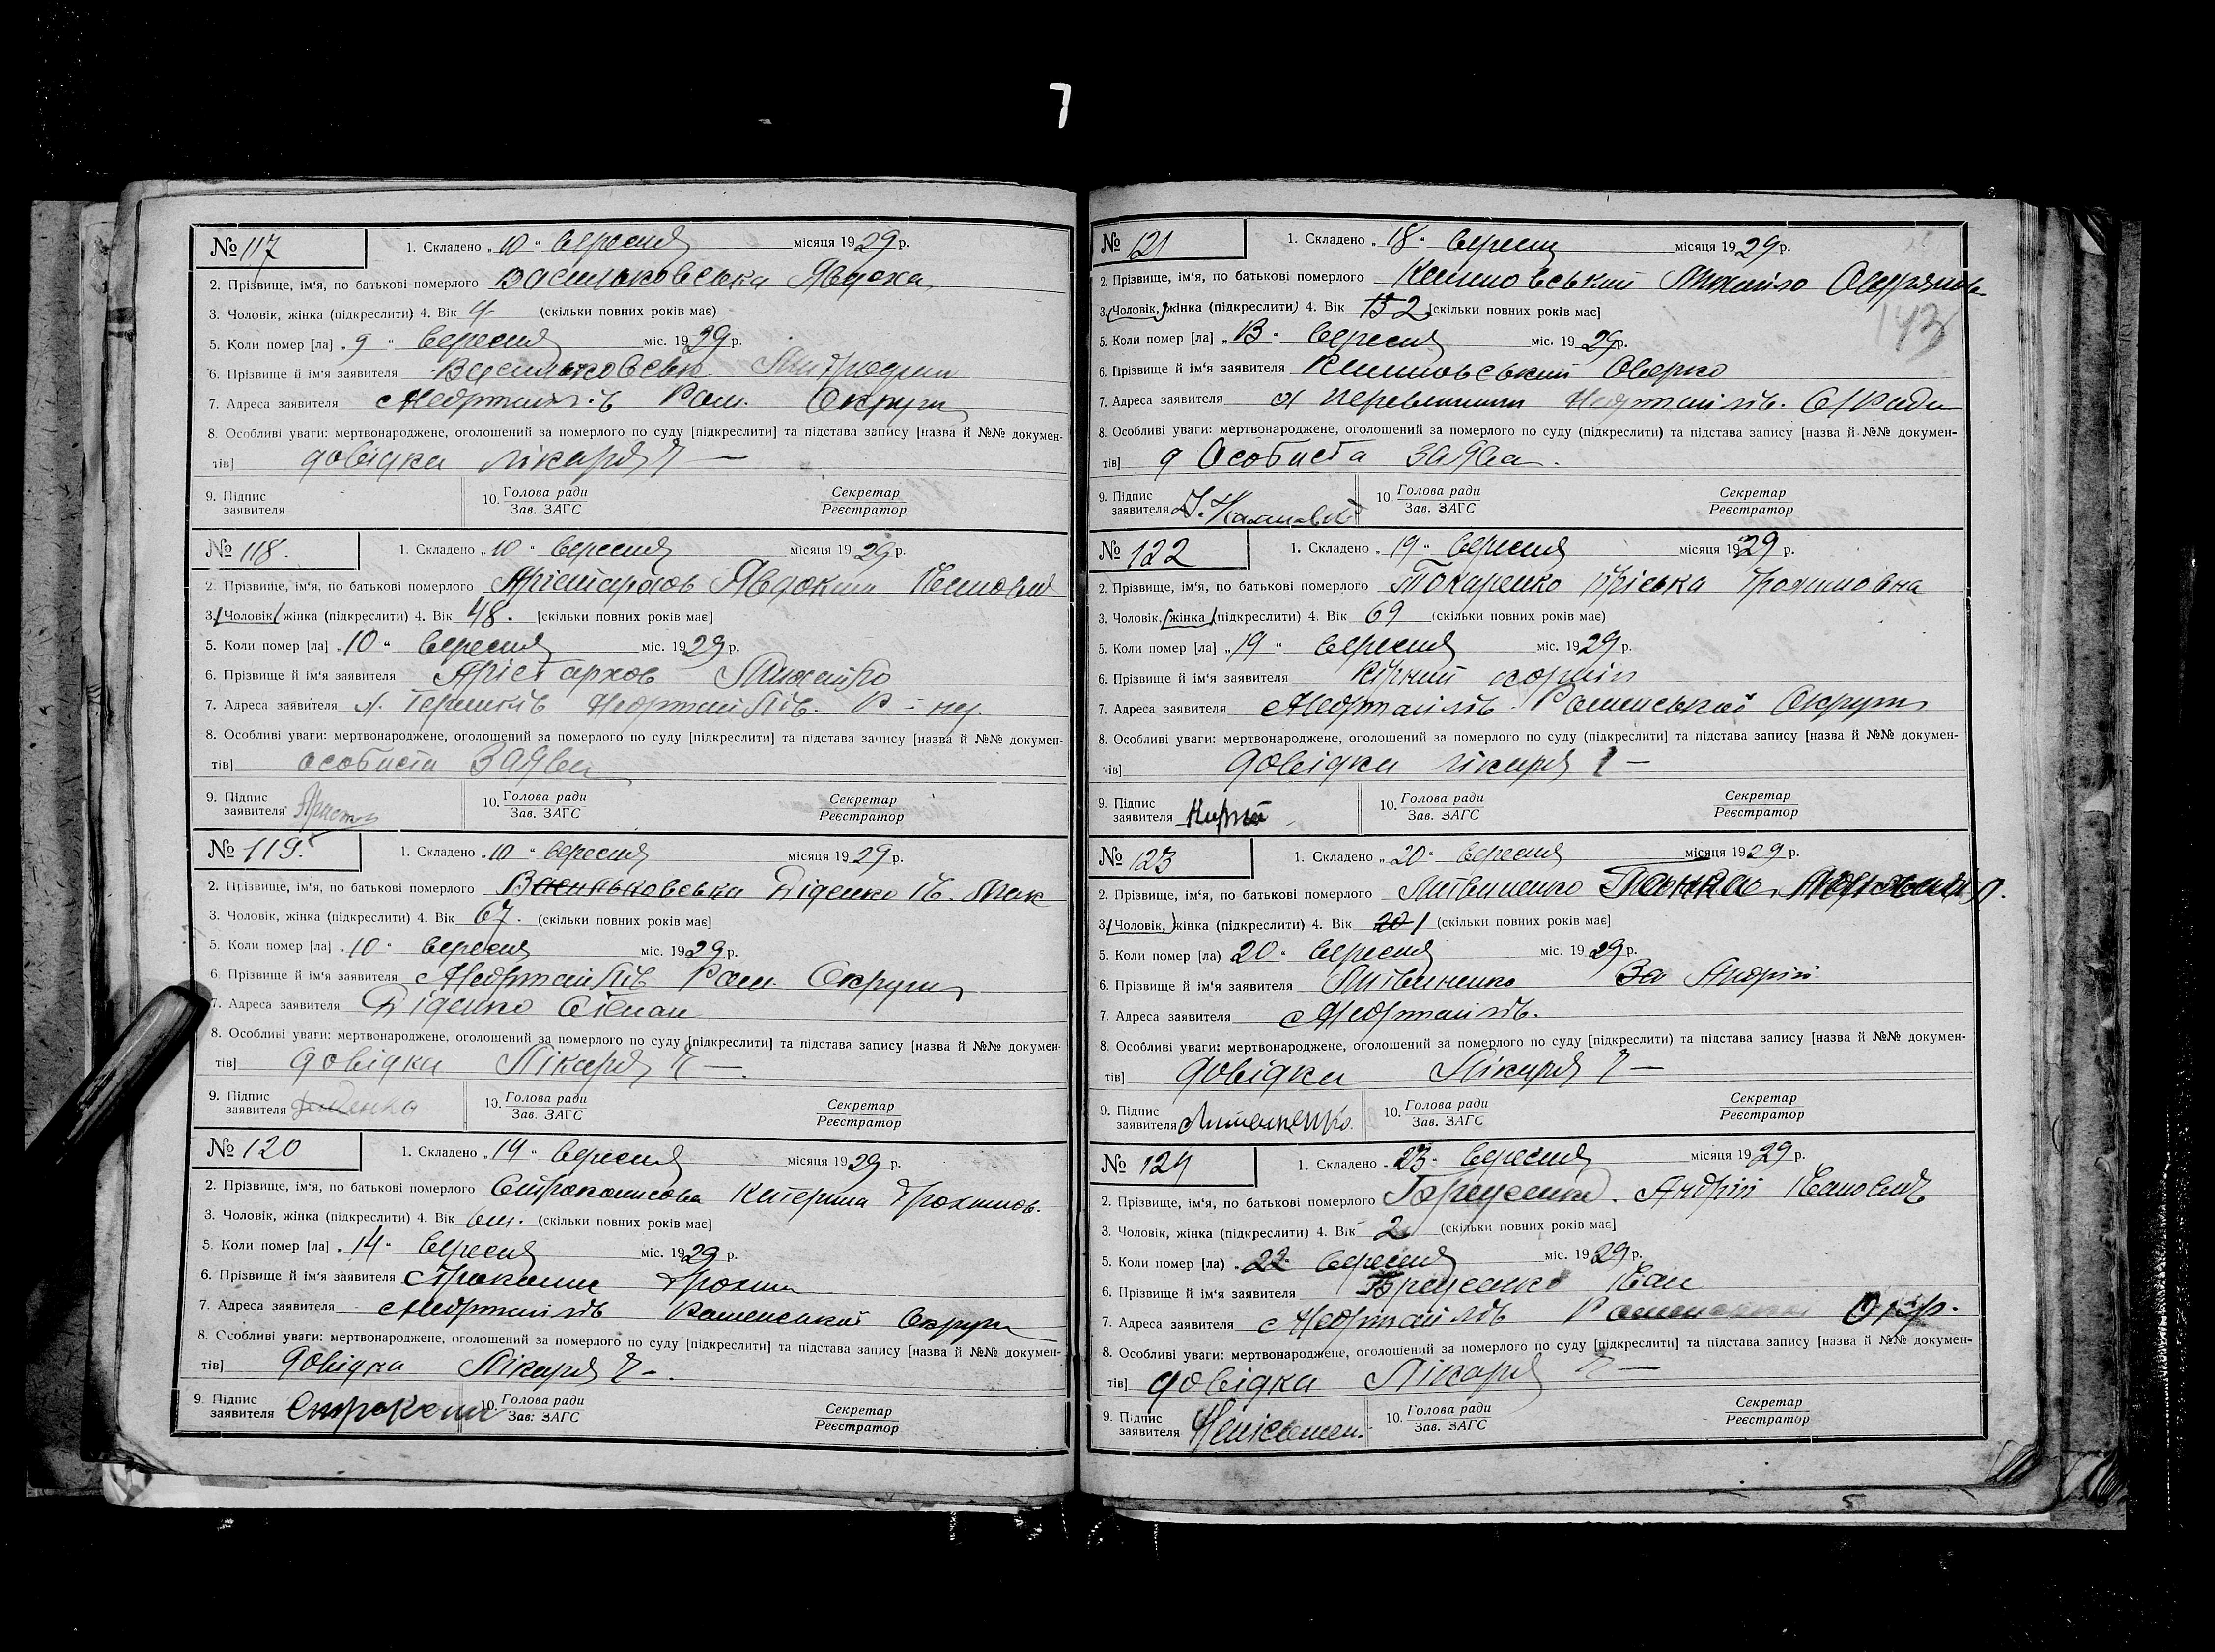 7
№ 117
1. Складено „10“ вересня місяця 1929 р.
2. Прізвище, ім‘я, по батькові померлого Васильковська Явдоха
3. Чоловік, жінка (підкреслити) 4. Вік 4 (скільки повних років має)
5. Коли помер [ла] „9“ вересня міс. 1929 р.
6. Прізвище й ім‘я заявителя Васильковськ.
7. Адреса заявителя Ром. Округи
8. Особливі уваги: мертвонароджене, оголошений за померлого по суду [підкреслити] та підстава запису [назва й №№ докумен-
тів] довідка лікаря
9. Підпис заявителя
10. Голова ради Зав. ЗАГС
Секретар Реєстратор
№ 118.
1. Складено „10“ вересня місяця 1929 р.
2. Прізвище, ім‘я, по батькові померлого Арістархов Явдоким
3. Чоловік, жінка (підкреслити) 4. Вік 48. [скільки повних років має]
5. Коли помер [ла] „10“ вересня міс. 1929 р.
6. Прізвище й ім‘я заявителя Арістархов Михайло
7. Адреса заявителя
8. Особливі уваги: мертвонароджене, оголошений за померлого по суду [підкреслити] та підстава запису [назва й №№ докумен-
тів] особиста Заява
9. Підпис заявителя
10. Голова ради Зав. ЗАГС
Секретар Реєстратор
№ 119.
1. Складено „10“ вересня місяця 1929 р.
2. Прізвище, ім‘я, по батькові померлого Васильковська Діденко
3. Чоловік, жінка (підкреслити) 4. Вік 67. (скільки повних років має]
5. Коли помер [ла] „10“ вересня міс. 1929 р.
6. Прізвище й ім‘я заявителя Ром. Округи
7. Адреса заявителя Діденко Степан
8. Особливі уваги: мертвонароджене, оголошений за померлого по суду [підкреслити] та підстава запису [назва й №№ докумен-
тів] довідка Лікаря
9. Підпис заявителя Диденко
10. Голова ради Зав. ЗАГС
Секретар Реєстратор
№ 120
1. Складено „14“ вересня місяця 1929 р.
2. Прізвище, ім‘я, по батькові померлого Катерина Трохимов.
3. Чоловік, жінка (підкреслити) 4. Вік 6м. (скільки повних років має]
5. Коли помер [ла] „14“ вересня міс. 1929 р.
6. Прізвище й ім‘я заявителя Трохим
7. Адреса заявителя Роменської Округи
8. Особливі уваги: мертвонароджене, оголошений за померлого по суду [підкреслити] та підстава запису [назва й №№ докумен-
тів] довідка Лікаря
9. Підпис заявителя
10. Голова ради Зав. ЗАГС
Секретар Реєстратор
№ 121
1. Складено „18“ вересня місяця 1929 р.
2. Прізвище, ім‘я, по батькові померлого Михайло
143
3. Чоловік, жінка (підкреслити) 4. Вік [скільки повних років має]
5. Коли помер [ла] вересня міс. 1929 р.
6. Прізвище й ім‘я заявителя Оверко
7. Адреса заявителя
8. Особливі уваги: мертвонароджене, оголошений за померлого по суду (підкреслити) та підстава запису [назва й №№ докумен-
тів] Особиста заява.
9. Підпис заявителя
10. Голова ради Зав. ЗАГС
Секретар Реєстратор
№ 122
1. Складено „19“ вересня місяця 1929 р.
2. Прізвище, ім‘я, по батькові померлого Токаренко Пріська Трохимовна
3. Чоловік, жінка (підкреслити) 4. Вік 69 (скільки повних років має)
5. Коли помер [ла] „19“ вересня міс. 1929 р.
6. Прізвище й ім‘я заявителя
7. Адреса заявителя Роменської Округи
8. Особливі уваги: мертвонароджене, оголошений за померлого по суду (підкреслити] та підстава запису [назва й №№ докумен-
тів] довідка лікаря
9. Підпис заявителя
10. Голова ради Зав. ЗАГС
Секретар Реєстратор
№ 123
1. Складено „20“ вересня місяця 1929 р.
2. Прізвище, ім‘я, по батькові померлого Литвиненко
3. Чоловік, жінка (підкреслити) 4. Вік 20 1 (скільки повних років має]
5. Коли помер [ла) 20 вересня міс. 1929 р.
6. Прізвище й ім‘я заявителя Литвиненко Андрій
7. Адреса заявителя
8. Особливі уваги: мертвонароджене, оголошений за померлого по суду [підкреслити) та підстава запису [назва й №№ докумен-
тів] довідка Лікаря
9. Підпис заявителя Литвиненко.
10. Голова ради Зав. ЗАГС
Секретар Реєстратор
№ 124
1. Складено „23“ вересня місяця 1929 р.
2. Прізвище, ім‘я, по батькові померлого Андрій Іванович
3. Чоловік, жінка (підкреслити) 4. Вік 2 (скільки повних років має]
5. Коли помер [ла) „22“ вересня міс. 1929 р.
6. Прізвище й ім‘я заявителя Іван
7. Адреса заявителя Роменської Окр.
8. Особливі уваги: мертвонароджене, оголошений за померлого по суду [підкреслити] та підстава запису [назва й №№ докумен-
тів] довідка Лікаря
9. Підпис заявителя
10. Голова ради Зав. ЗАГС
Секретар Реєстратор